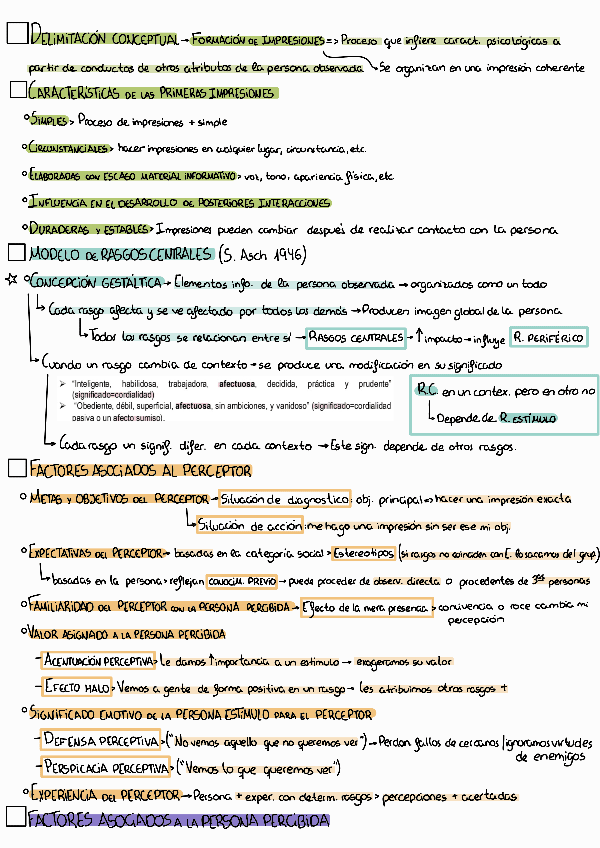 DELIMITACIÓN CONCEPTUAL → FORMACIÓN DE IMPRESIONES => Proceso que infiere caract. psicológicas a
partir de conductas de otros atributos de la persona observada → Se organizan en una impresión coherente
CARACTERÍSTICAS DE LAS PRIMERAS IMPRESIONES
SIMPLES > Proceso de impresiones + simple
CIRCUNSTANCIALES > hacer impresiones en cualquier lugar, circunstancia, etc.
ELABORADAS CON ESCASO MATERIAL INFORMATIVO > voz, tono, apariencia física, etc
INFLUENCIA EN EL DESARROLLO DE POSTERIORES INTERACCIONES
DURADERAS Y ESTABLES > Impresiones pueden cambiar después de realizar contacto con la persona
MODELO DE RASGOS CENTRALES (S. Asch 1946)
☆ CONCEPCIÓN GESTÁLTICA → Elementos info. de la persona observada → organizados como un todo
Cada rasgo afecta y se ve afectado por todos los demás → Producen imagen global de la persona
Todos los rasgos se relacionan entre sí → RASGOS CENTRALES → ↑ impacto → influye R. PERIFÉRICO
Cuando un rasgo cambia de contexto → se produce una modificación en su significado
➢ "Inteligente, habilidosa, trabajadora, afectuosa, decidida, práctica y prudente"
(significado=cordialidad)
➢ "Obediente, débil, superficial, afectuosa, sin ambiciones, y vanidoso" (significado=cordialidad
pasiva o un afecto sumiso).
R.C. en un contex. pero en otro no
Depende de R. ESTÍMULO
Cada rasgo un signif. difer. en cada contexto → Este sign. depende de otros rasgos.
FACTORES ASOCIADOS AL PERCEPTOR
METAS Y OBJETIVOS DEL PERCEPTOR → Situación de diagnostico: obj. principal => hacer una impresión exacta
Situación de acción: me hago una impresión sin ser ese mi obj.
EXPECTATIVAS DEL PERCEPTOR → basadas en la categoría social > Estereotipos (si rasgos no coinciden con E. lo sacamos del grup)
basadas en la persona > reflejan CONOCIM. PREVIO → puede proceder de observ. directa o procedentes de 3as personas
FAMILIARIDAD DEL PERCEPTOR CON LA PERSONA PERCIBIDA → Efecto de la mera presencia > convivencia o roce cambia mi
percepción
VALOR ASIGNADO A LA PERSONA PERCIBIDA
- ACENTUACIÓN PERCEPTIVA > le damos ↑ importancia a un estimulo → exageramos su valor
- EFECTO HALO > Vemos a gente de forma positiva en un rasgo → les atribuimos otros rasgos +
SIGNIFICADO EMOTIVO DE LA PERSONA ESTÍMULO PARA EL PERCEPTOR
- DEFENSA PERCEPTIVA > ("No vemos aquello que no queremos ver") → Perdon fallos de cercanos / ignoramos virtudes
de enemigos
- PERSPICACIA PERCEPTIVA > ("Vemos lo que queremos ver")
EXPERIENCIA DEL PERCEPTOR → Persona + exper. con determ. rasgos > percepciones + acertadas
FACTORES ASOCIADOS A LA PERSONA PERCIBIDA